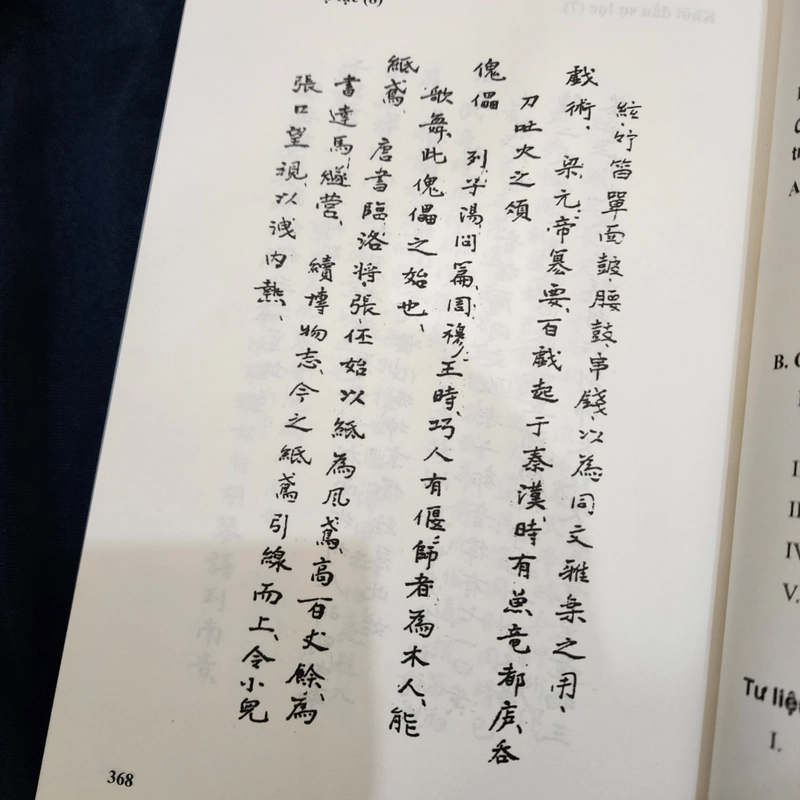 絃竹笛單面鼓腰鼓串錢以為同文雅樂之用、
戲術、梁元帝纂要百戲起于秦漢時有魚竜都盧吞
刀吐火之類
傀儡 列子湯問篇周穆王時巧人有偃師者為木人能
歌舞此傀儡之始也、
紙鳶、唐書臨洺將張伾始以紙為風鳶高百丈餘為
書達馬燧营、續博物志今之紙鳶引線而上令小兒
張口望視以洩內熱、
368
Tư liệu
I.
B.
I
II
IV
V.
A